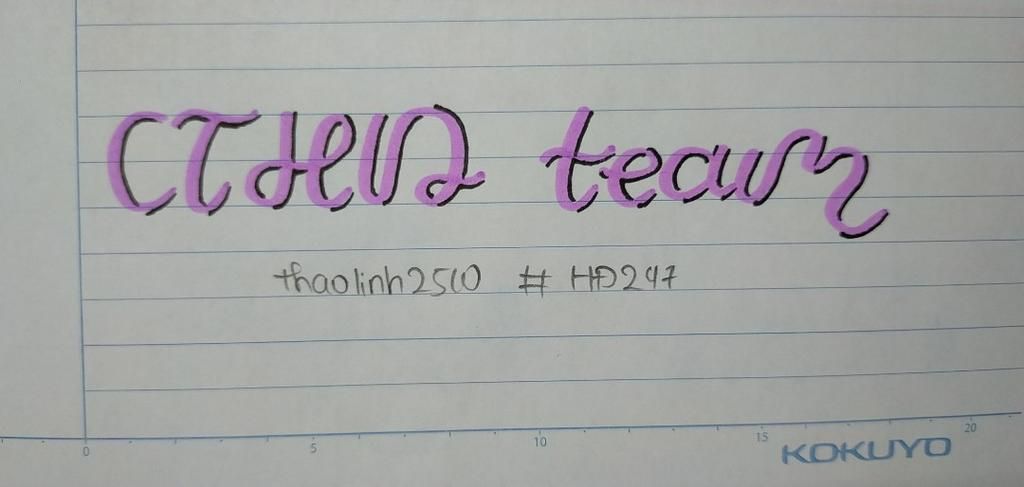 team
thaolinh2510 # HĐ247
0 5 10 15 20
KOKUYO